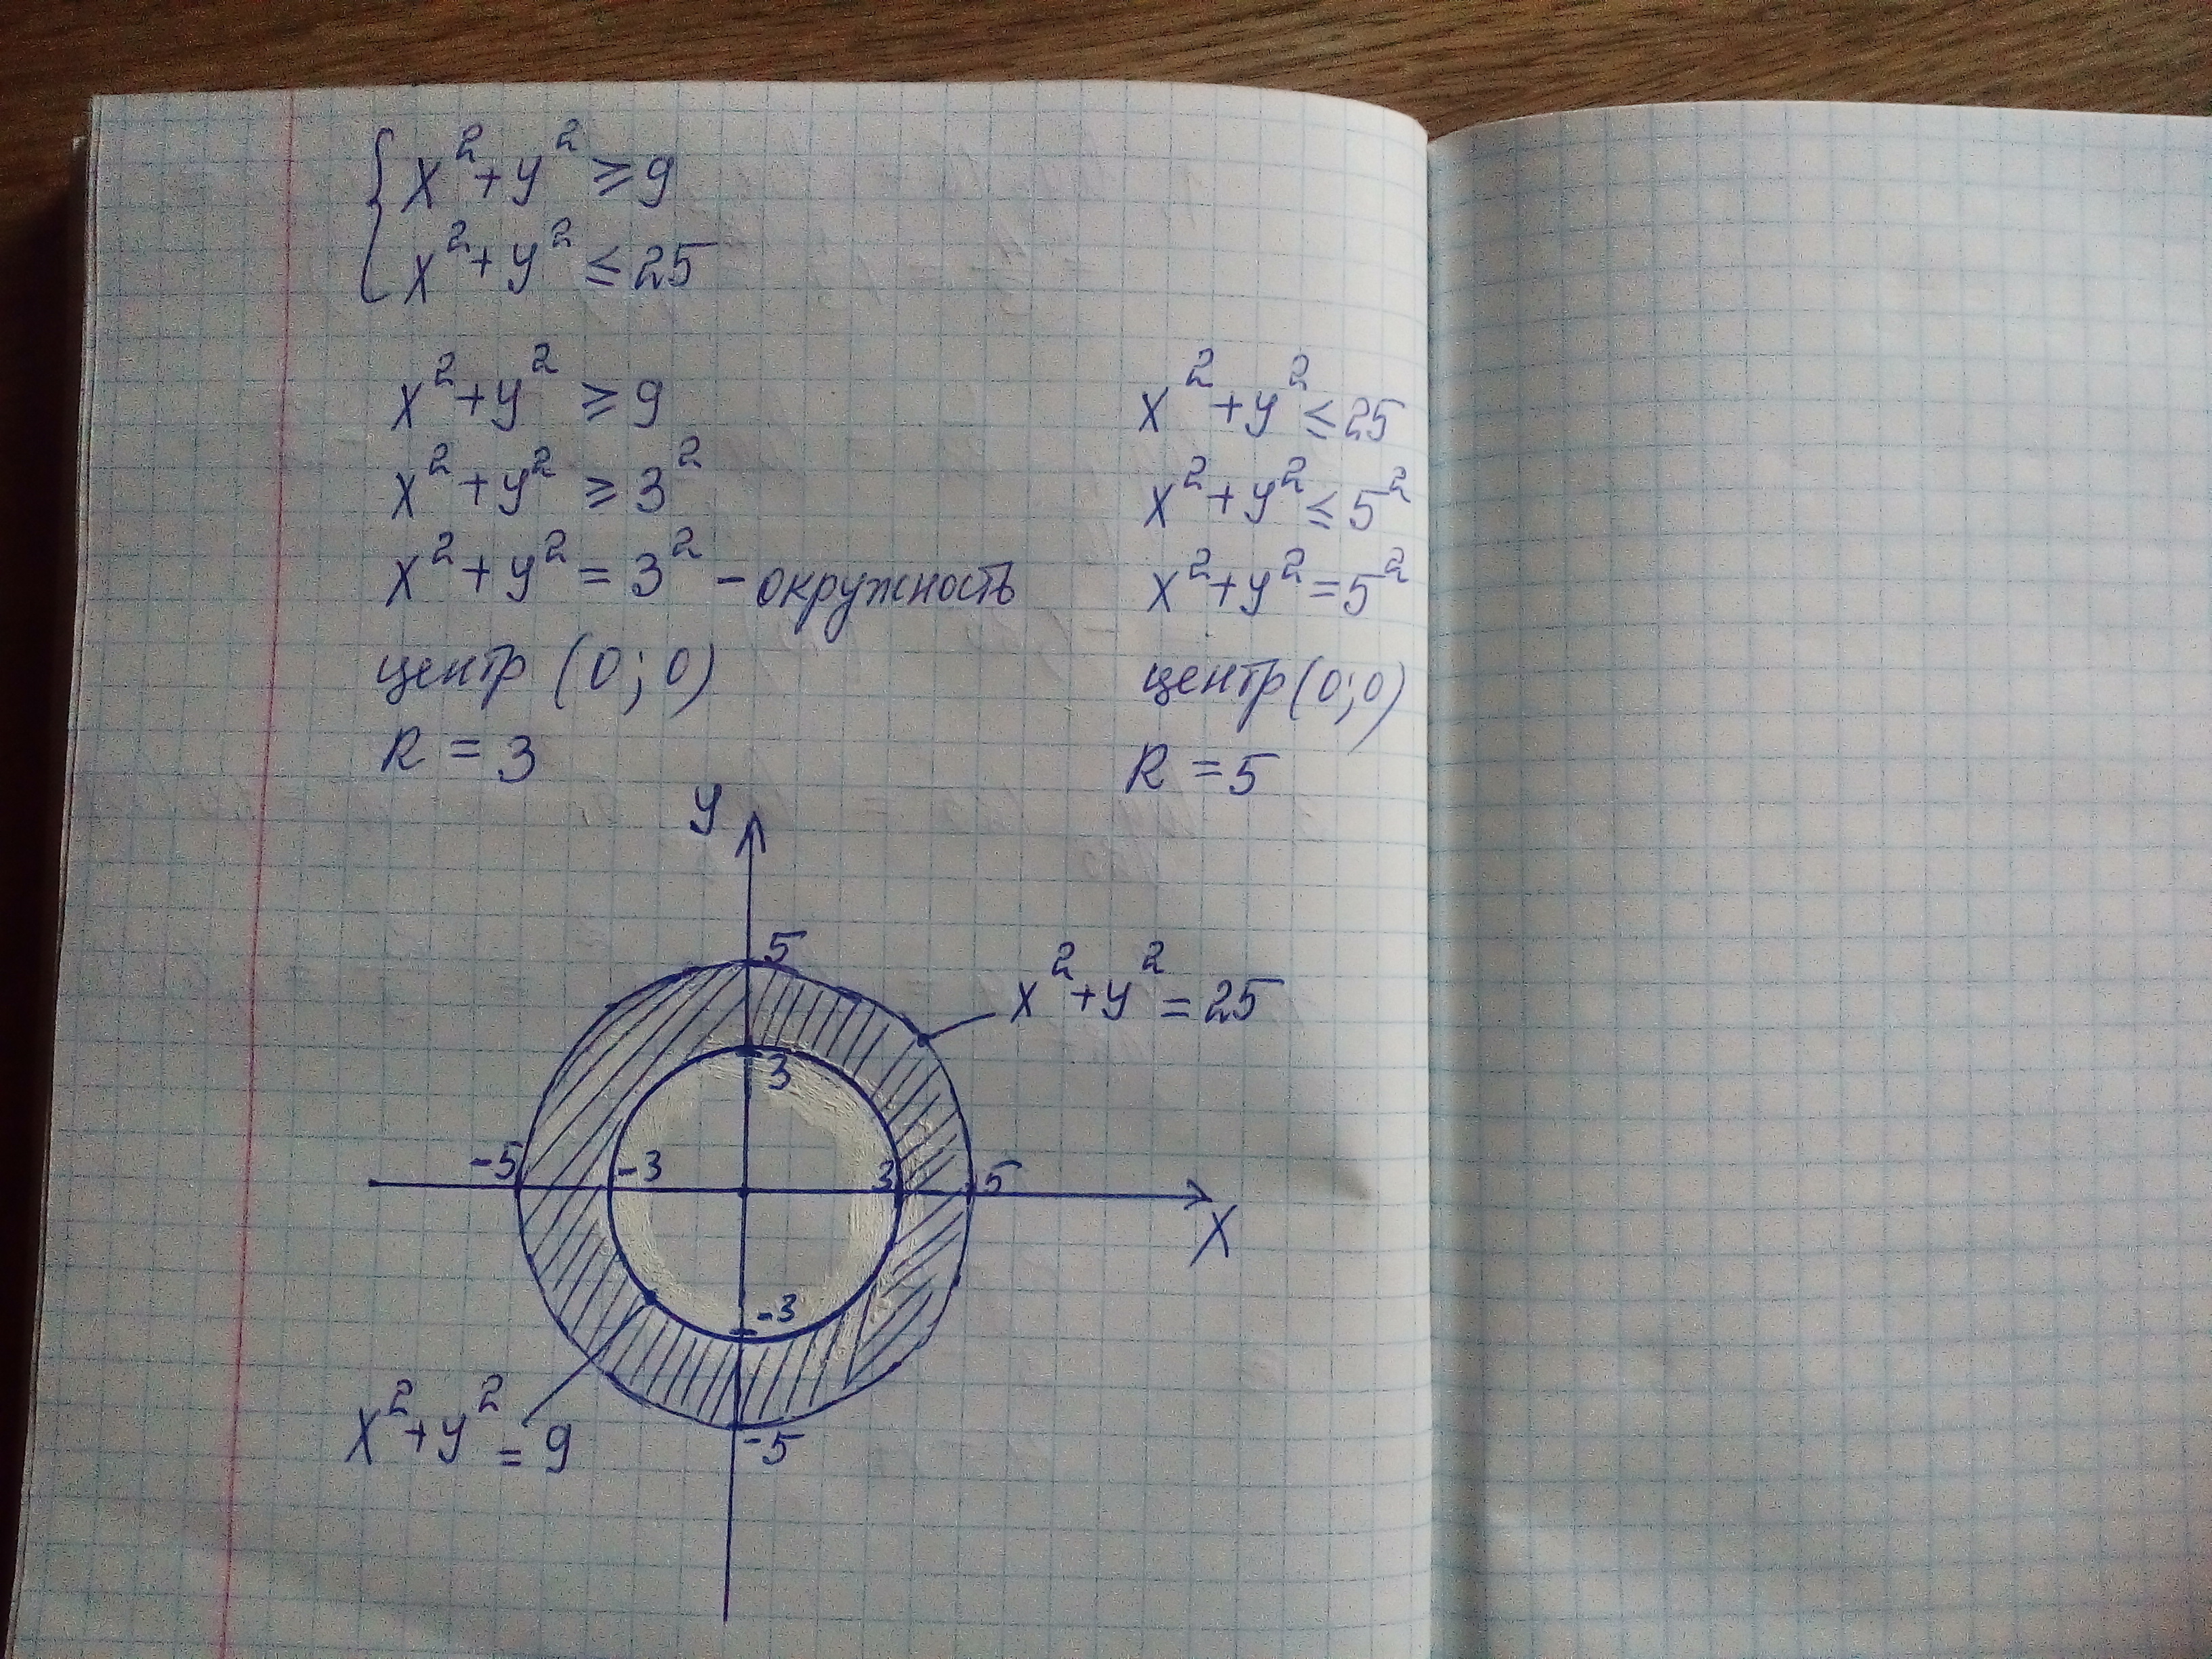 { x² + y² ≥ 9
x² + y² ≤ 25
x² + y² ≥ 9
x² + y² ≥ 3²
x² + y² = 3² - окружность
центр (0; 0)
R = 3
x² + y² ≤ 25
x² + y² ≤ 5²
x² + y² = 5²
центр (0; 0)
R = 5
y
5
x² + y² = 25
3
-5
-3
3
5
x
-3
x² + y² = 9
-5